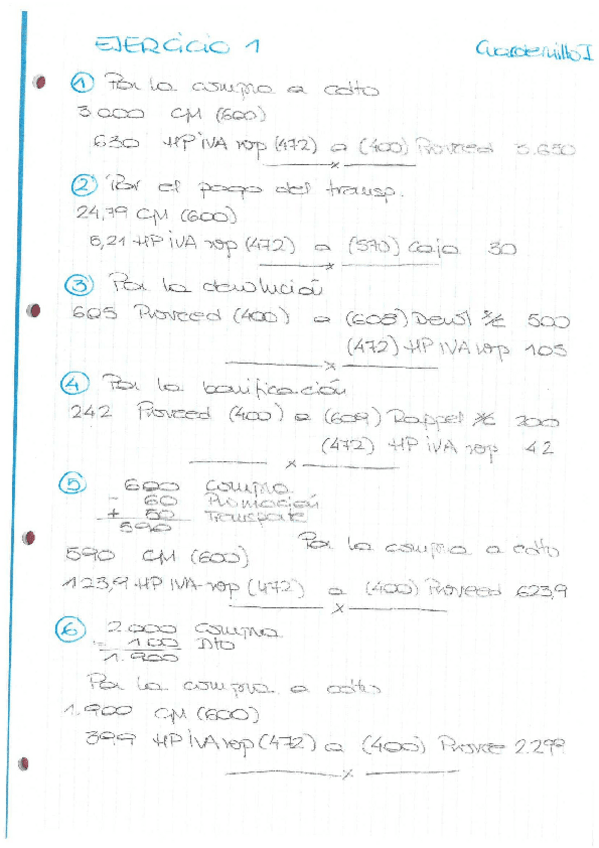 EJERCICIO 1 Cuadernillo I
① Por la compra a cdto
3000 CM (600)
630 HP IVA sop (472) a (400) Proveed 3.630
② Por el pago del transp.
24,79 CM (600)
5,21 HP IVA sop (472) a (570) Caja 30
③ Por la devolución
605 Proveed (400) a (608) Devol s/c 500
(472) HP IVA sop 105
④ Por la bonificación
242 Proveed (400) a (609) Rappel s/c 200
(472) HP IVA sop 42
⑤ 600 compra
- 60 Promoción
+ 50 Transporte
590
Por la compra a cdto
590 CM (600)
123,9 HP IVA sop (472) a (400) Proveed 623,9
⑥ 2.000 compra
- 100 Dto
1.900
Por la compra a cdto
1.900 CM (600)
399 HP IVA sop (472) a (400) Provee 2.299